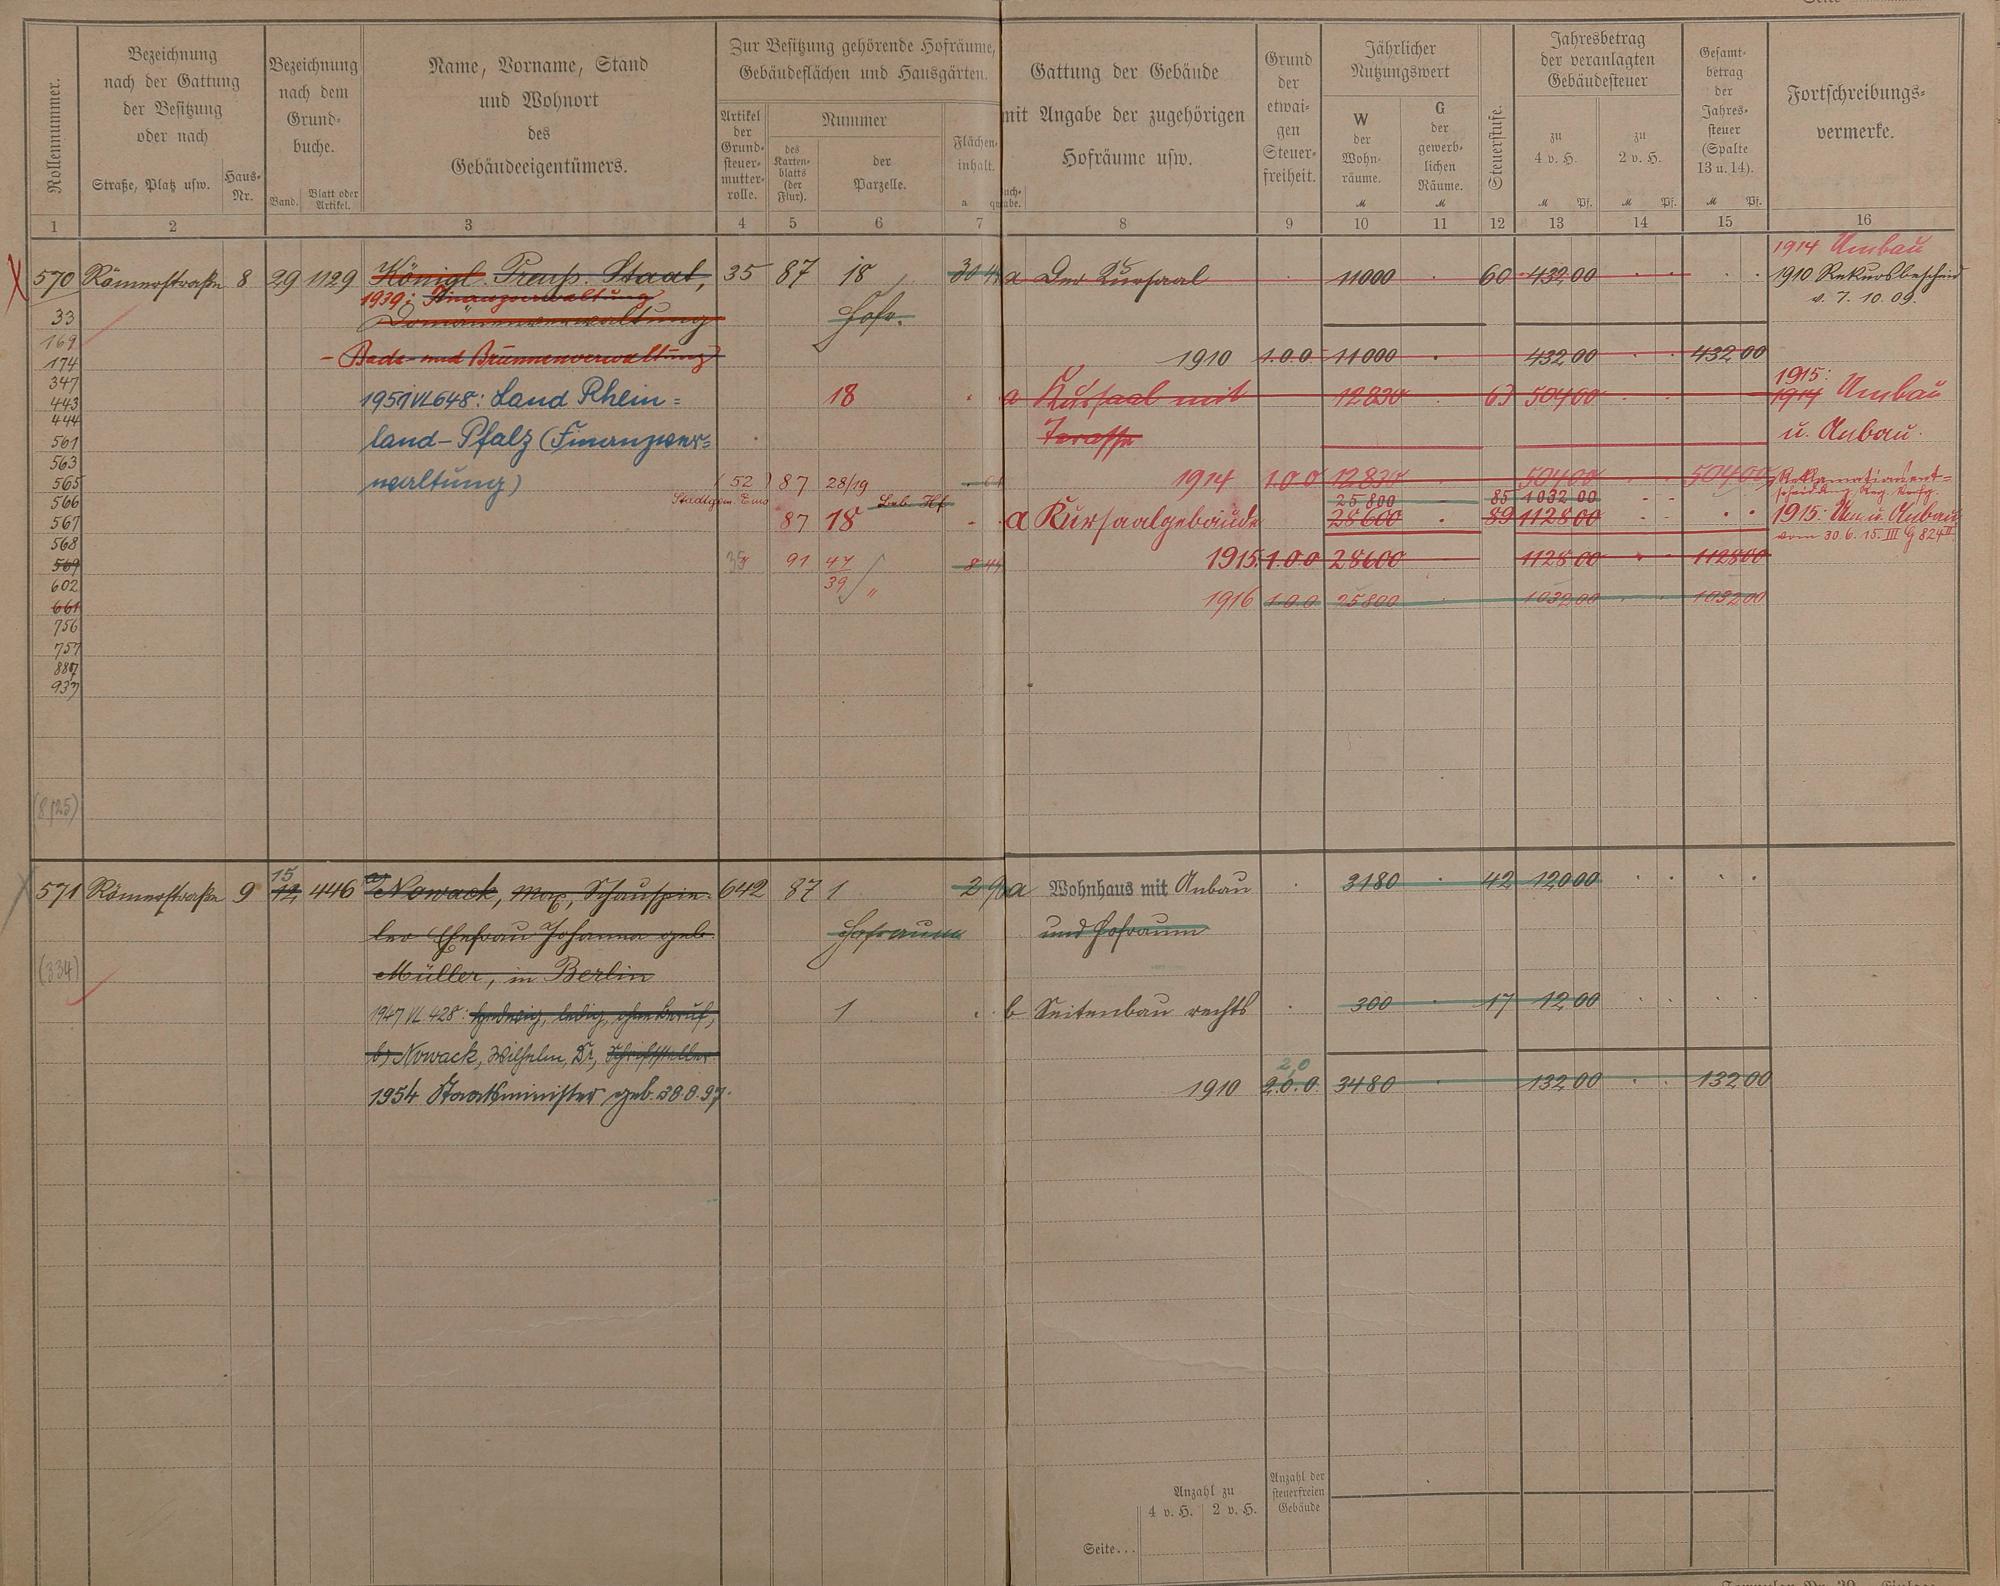 Rollennummer.
Bezeichnung
nach der Gattung
der Besitzung
oder nach
Straße, Platz usw.
Haus-
Nr.
Bezeichnung
nach dem
Grund-
buche.
Band.
Blatt oder
Artikel.
Name, Vorname, Stand
und Wohnort
des
Gebäudeeigentümers.
Zur Besitzung gehörende Hofräume,
Gebäudeflächen und Hausgärten.
Artikel
der
Grund-
steuer-
mutter-
rolle.
Nummer
des
Karten-
blatts
(der
Flur).
der
Parzelle.
Flächen-
inhalt.
a
Gattung der Gebäude
mit Angabe der zugehörigen
Hofräume usw.
Grund
der
etwai-
gen
Steuer-
freiheit.
Jährlicher
Nutzungswert
W
der
Wohn-
räume.
M
G
der
gewerb-
lichen
Räume.
M
Steuerstufe.
Jahresbetrag
der veranlagten
Gebäudesteuer
zu
4 v. H.
M Pf.
zu
2 v. H.
M Pf.
Gesamt-
betrag
der
Jahres-
steuer
(Spalte
13 u. 14).
M Pf.
Fortschreibungs-
vermerke.
1 2 3 4 5 6 7 8 9 10 11 12 13 14 15 16
1914 Umbau
570 Römerstraße 8 29 1129 Königl. Preuß. Staat, 35 87 18 a Der Kursaal 11000 60 432 00 1910 Rekursbescheid
v. 7. 10. 09.
1939: Finanzverwaltung
33 Domänenverwaltung Hofr.
169
174 - Bade- und Brunnenverwaltung 1910 1.0.0. 11000 432 00 432 00
347
1915:
443 1951 VL 648: Land Rhein= 18 a Kursaal mit 12830 63 504 00 1914 Umbau
444
561 land-Pfalz (Finanzver= Terasse u. Anbau.
563
565 waltung) (52) 87 28/19 1914 1.0.0 12830 504 00 504 00
Stadtgem. Ems
566 25 800 85 1032 00
567 87 18 a Kursaalgebäude 28600 89 1128 00 1915: Um u. Anbau
vom 30. 6. 15. III G 824 II
568
569 35 91 47/39 8 44 1915 1.0.0 28600 1128 00 1128 00
602 "
661 1916 1.0.0 25800 1032 00 1032 00
756
757
887
937
(8/25)
15
571 Römerstraße 9 12 446 a) Nowack, Max, Schauspie- 642 87 1 2 90 a Wohnhaus mit Anbau 3180 42 120 00
ler Ehefrau Johanna geb. Hofraum und Hofraum
(334) Müller, in Berlin
1947 VL 428: Hedwig, ledig, ohne Beruf, 1 b Seitenbau rechts 300 17 12 00
b) Nowack, Wilhelm, Dr, Schriftsteller
2,0
1954 Staatsminister geb. 28.8.97. 1910 2.0.0. 3480 132 00 132 00
Anzahl zu
4 v. H. 2 v. H.
Anzahl der
steuerfreien
Gebäude
Seite...